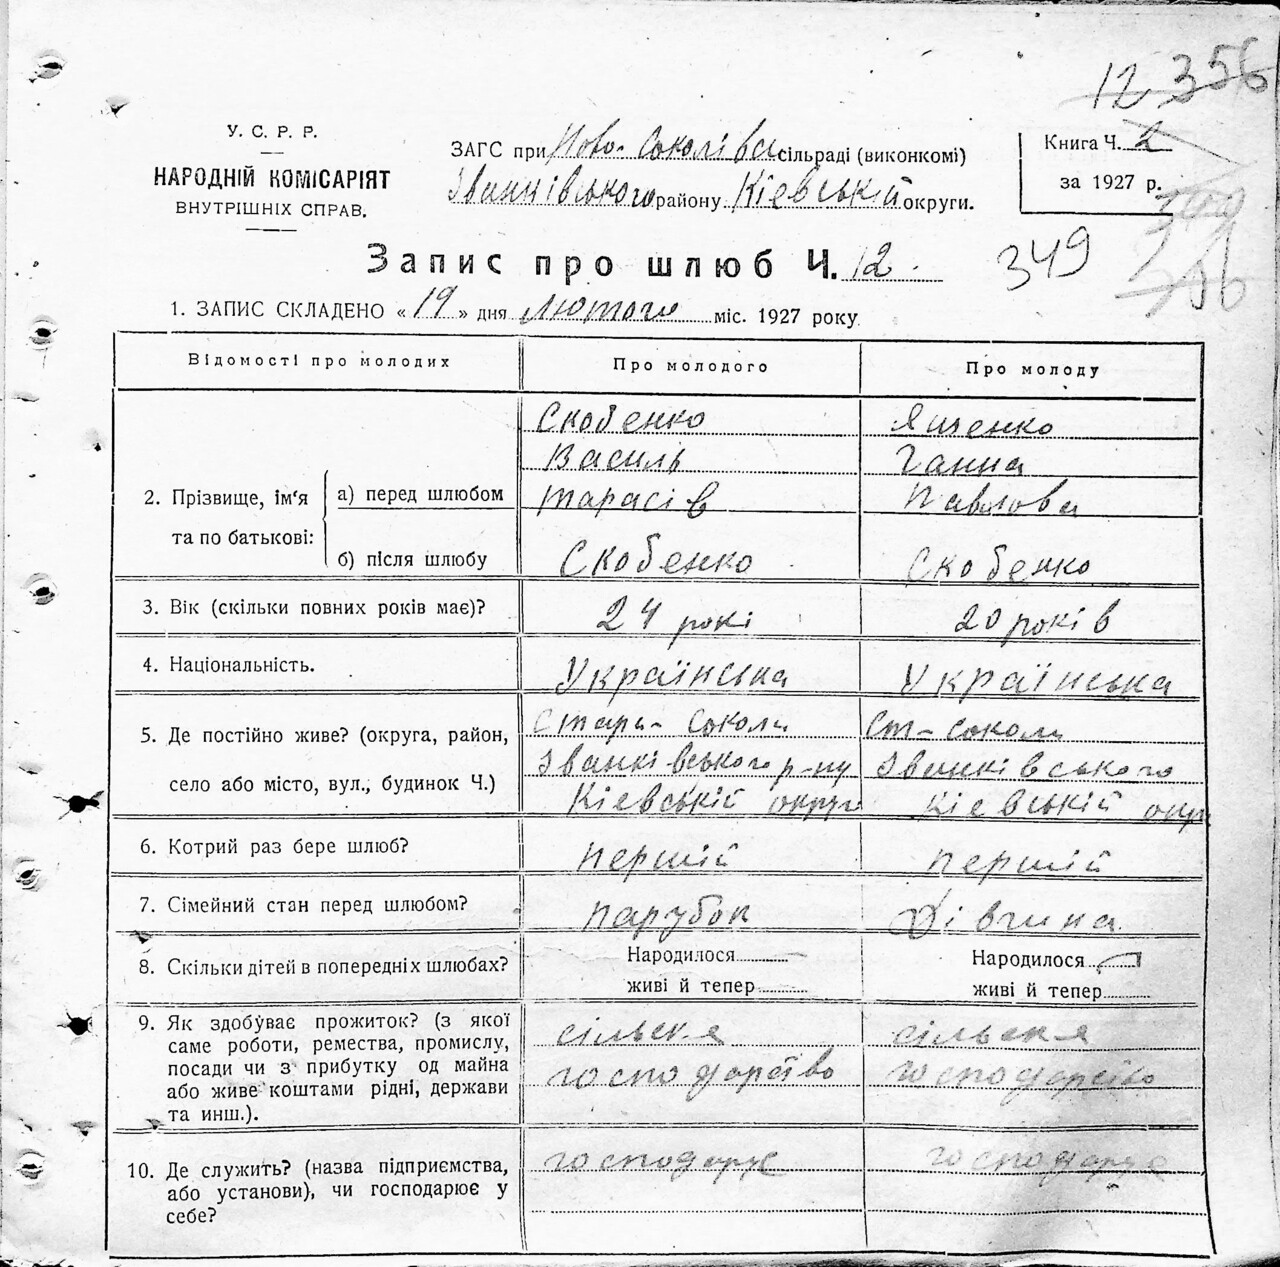 12 356
У. С. Р. Р.
НАРОДНІЙ КОМІСАРІЯТ
ВНУТРІШНІХ СПРАВ.
ЗАГС при Ново-Соколівс сільраді (виконкомі)
Іванківського району Кіевській округи.
Книга Ч. 2
за 1927 р.
349
Запис про шлюб Ч. 12.
1. ЗАПИС СКЛАДЕНО «19» дня Лютого міс. 1927 року
Відомості про молодих Про молодого Про молоду
2. Прізвище, ім'я та по батькові:
а) перед шлюбом
Скобенко Ященко
Василь Ганна
Тарасів Павлова
б) після шлюбу Скобенко Скобенко
3. Вік (скільки повних років має)? 24 рокі 20 років
4. Національність. Українська Українська
5. Де постійно живе? (округа, район,
село або місто, вул., будинок Ч.)
Стари-Соколи Ст-Соколи
Іванківського р-ну Іванківського
Кіевській округи Кіевській окру
6. Котрий раз бере шлюб? першій першій
7. Сімейний стан перед шлюбом? парубок Дівчина
8. Скільки дітей в попередніх шлюбах? Народилося Народилося
живі й тепер живі й тепер
9. Як здобуває прожиток? (з якої
саме роботи, ремества, промислу,
посади чи з прибутку од майна
або живе коштами рідні, держави
та инш.).
сільск-я сільск-я
господарство господарство
10. Де служить? (назва підприємства,
або установи), чи господарює у
себе?
господарує господарує